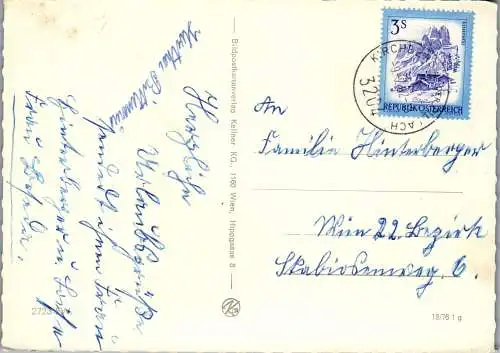 Herzliche
Urlaubsgrüße
sendet Ihnen Frau
Hinterberger u.
Frau
Bildpostkartenverlag Kellner KG., 1160 Wien, Hippgasse 8
3S
REPUBLIK ÖSTERREICH
KIRCHB
3204
LACH
An
Familie Hinterberger
Wien 22. Bezirk
Skabiosenweg 6.
2723
18/76 1 g